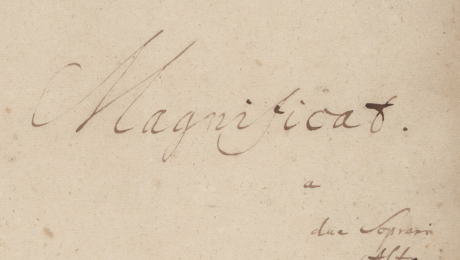 Magnificat.
a
due Soprani
Alto